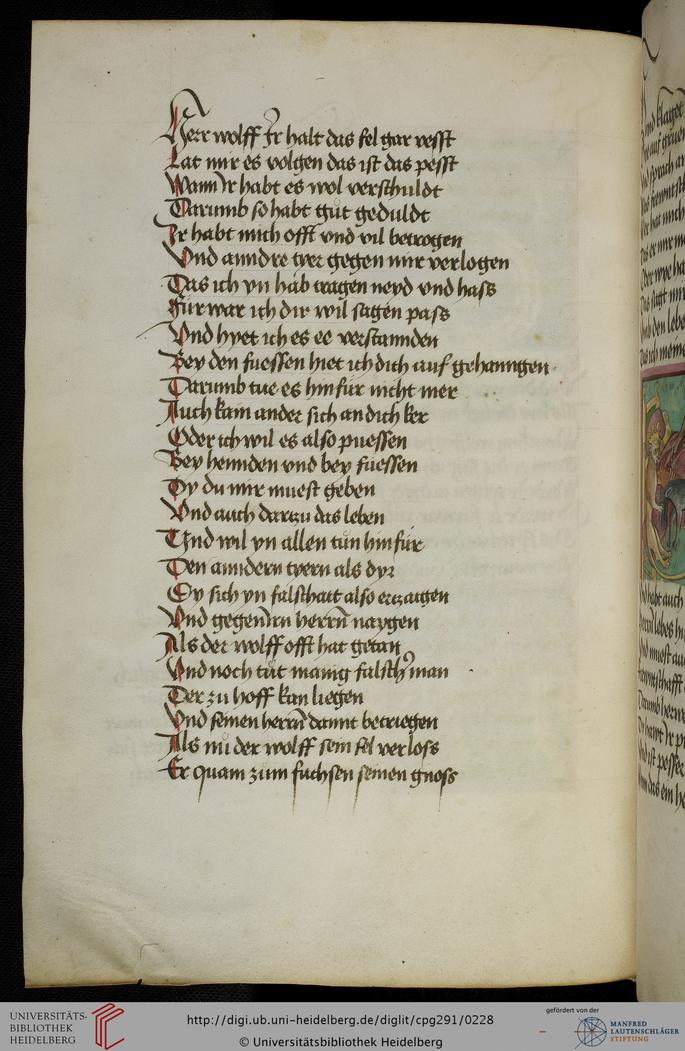 Herr wolff Ir halt das fel gar vesst
Lat mir es volgen das ist das pesst
Wann Ir habt es wol verschuldt
Darumb so habt gut geduldt
Ir habt mich offt vnd vil betrogen
Vnd anndre tyer gegen mir verlogen
Das ich yn hab tragen neyd vnd hass
Fur war ich dir wil sagen pass
Vnd hyet ich es ee verstannden
Bey den fuessen hiet ich dich auf gehanngen
Darumb tue es hinfur nicht mer
Auch kain ander sich an dich ker
Oder ich wil es also puessen
Bey hennden vnd bey fuessen
Dy du mir muest geben
Vnd auch dartzu das leben
Vnd wil yn allen tůn hinfür
Den anndern tyern als dyr
Dy sich yn falschait also ertzaigen
Vnd gegen irn herrn̄ naygen
Als der wolff offt hat getan
Vnd noch tůt manig falscher man
Der zu hoff kan liegen
Vnd seinen herrn̄ damit betriegen
Als nu der wolff sein fel verloss
Er quam zům fuchsen seinen gnoss
nd klaget
nd sprach
Das ich meine
nd habt auch
UNIVERSITÄTS-
BIBLIOTHEK
HEIDELBERG
http://digi.ub.uni-heidelberg.de/diglit/cpg291/0228
© Universitätsbibliothek Heidelberg
gefördert von der
MANFRED
LAUTENSCHLÄGER
STIFTUNG